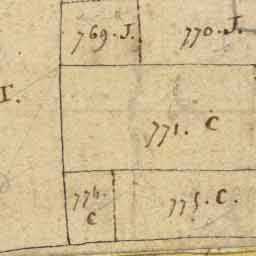 769. J.
770. J.
T.
771. C
776.
C
775. C.